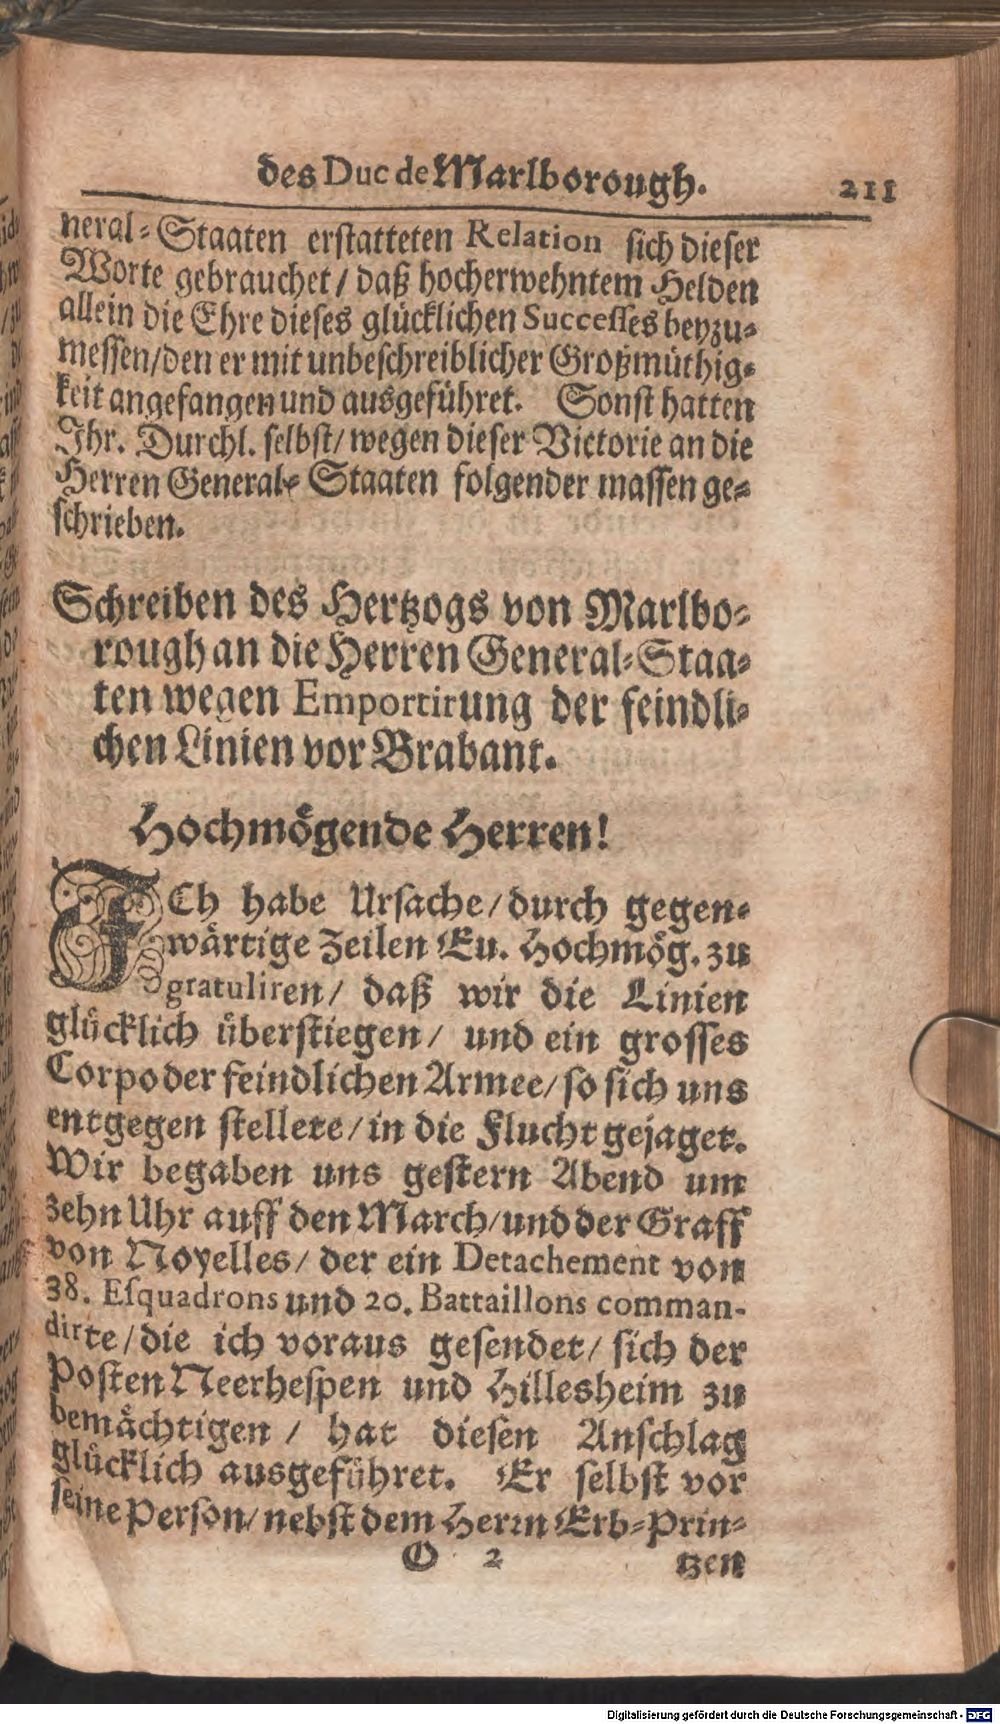 des Duc de Marlborough. 211
neral-Staaten erstatteten Relation sich dieser
Worte gebrauchet / daß hocherwehntem Helden
allein die Ehre dieses glücklichen Successes beyzu-
messen/den er mit unbeschreiblicher Großmüthig-
keit angefangen und ausgeführet. Sonst hatten
Ihr. Durchl. selbst/ wegen dieser Victorie an die
Herren General-Staaten folgender massen ge-
schrieben.
Schreiben des Hertzogs von Marlbo-
rough an die Herren General-Staa-
ten wegen Emportirung der feindli-
chen Linien vor Brabant.
Hochmögende Herren!
ICh habe Ursache/durch gegen-
wärtige Zeilen Eu. Hochmög. zu
gratuliren/ daß wir die Linien
glücklich überstiegen/ und ein grosses
Corpo der feindlichen Armee/so sich uns
entgegen stellete/in die Flucht gejaget.
Wir begaben uns gestern Abend um
zehn Uhr auff den March/und der Graff
von Noyelles/ der ein Detachement von
38. Esquadrons und 20. Battaillons comman-
dirte/die ich voraus gesendet/ sich der
Posten Neerhespen und Hillesheim zu
bemächtigen / hat diesen Anschlag
glücklich ausgeführet. Er selbst vor
seine Person/nebst dem Herrn Erb-Prin-
O 2 tzen
Digitalisierung gefördert durch die Deutsche Forschungsgemeinschaft - DFG